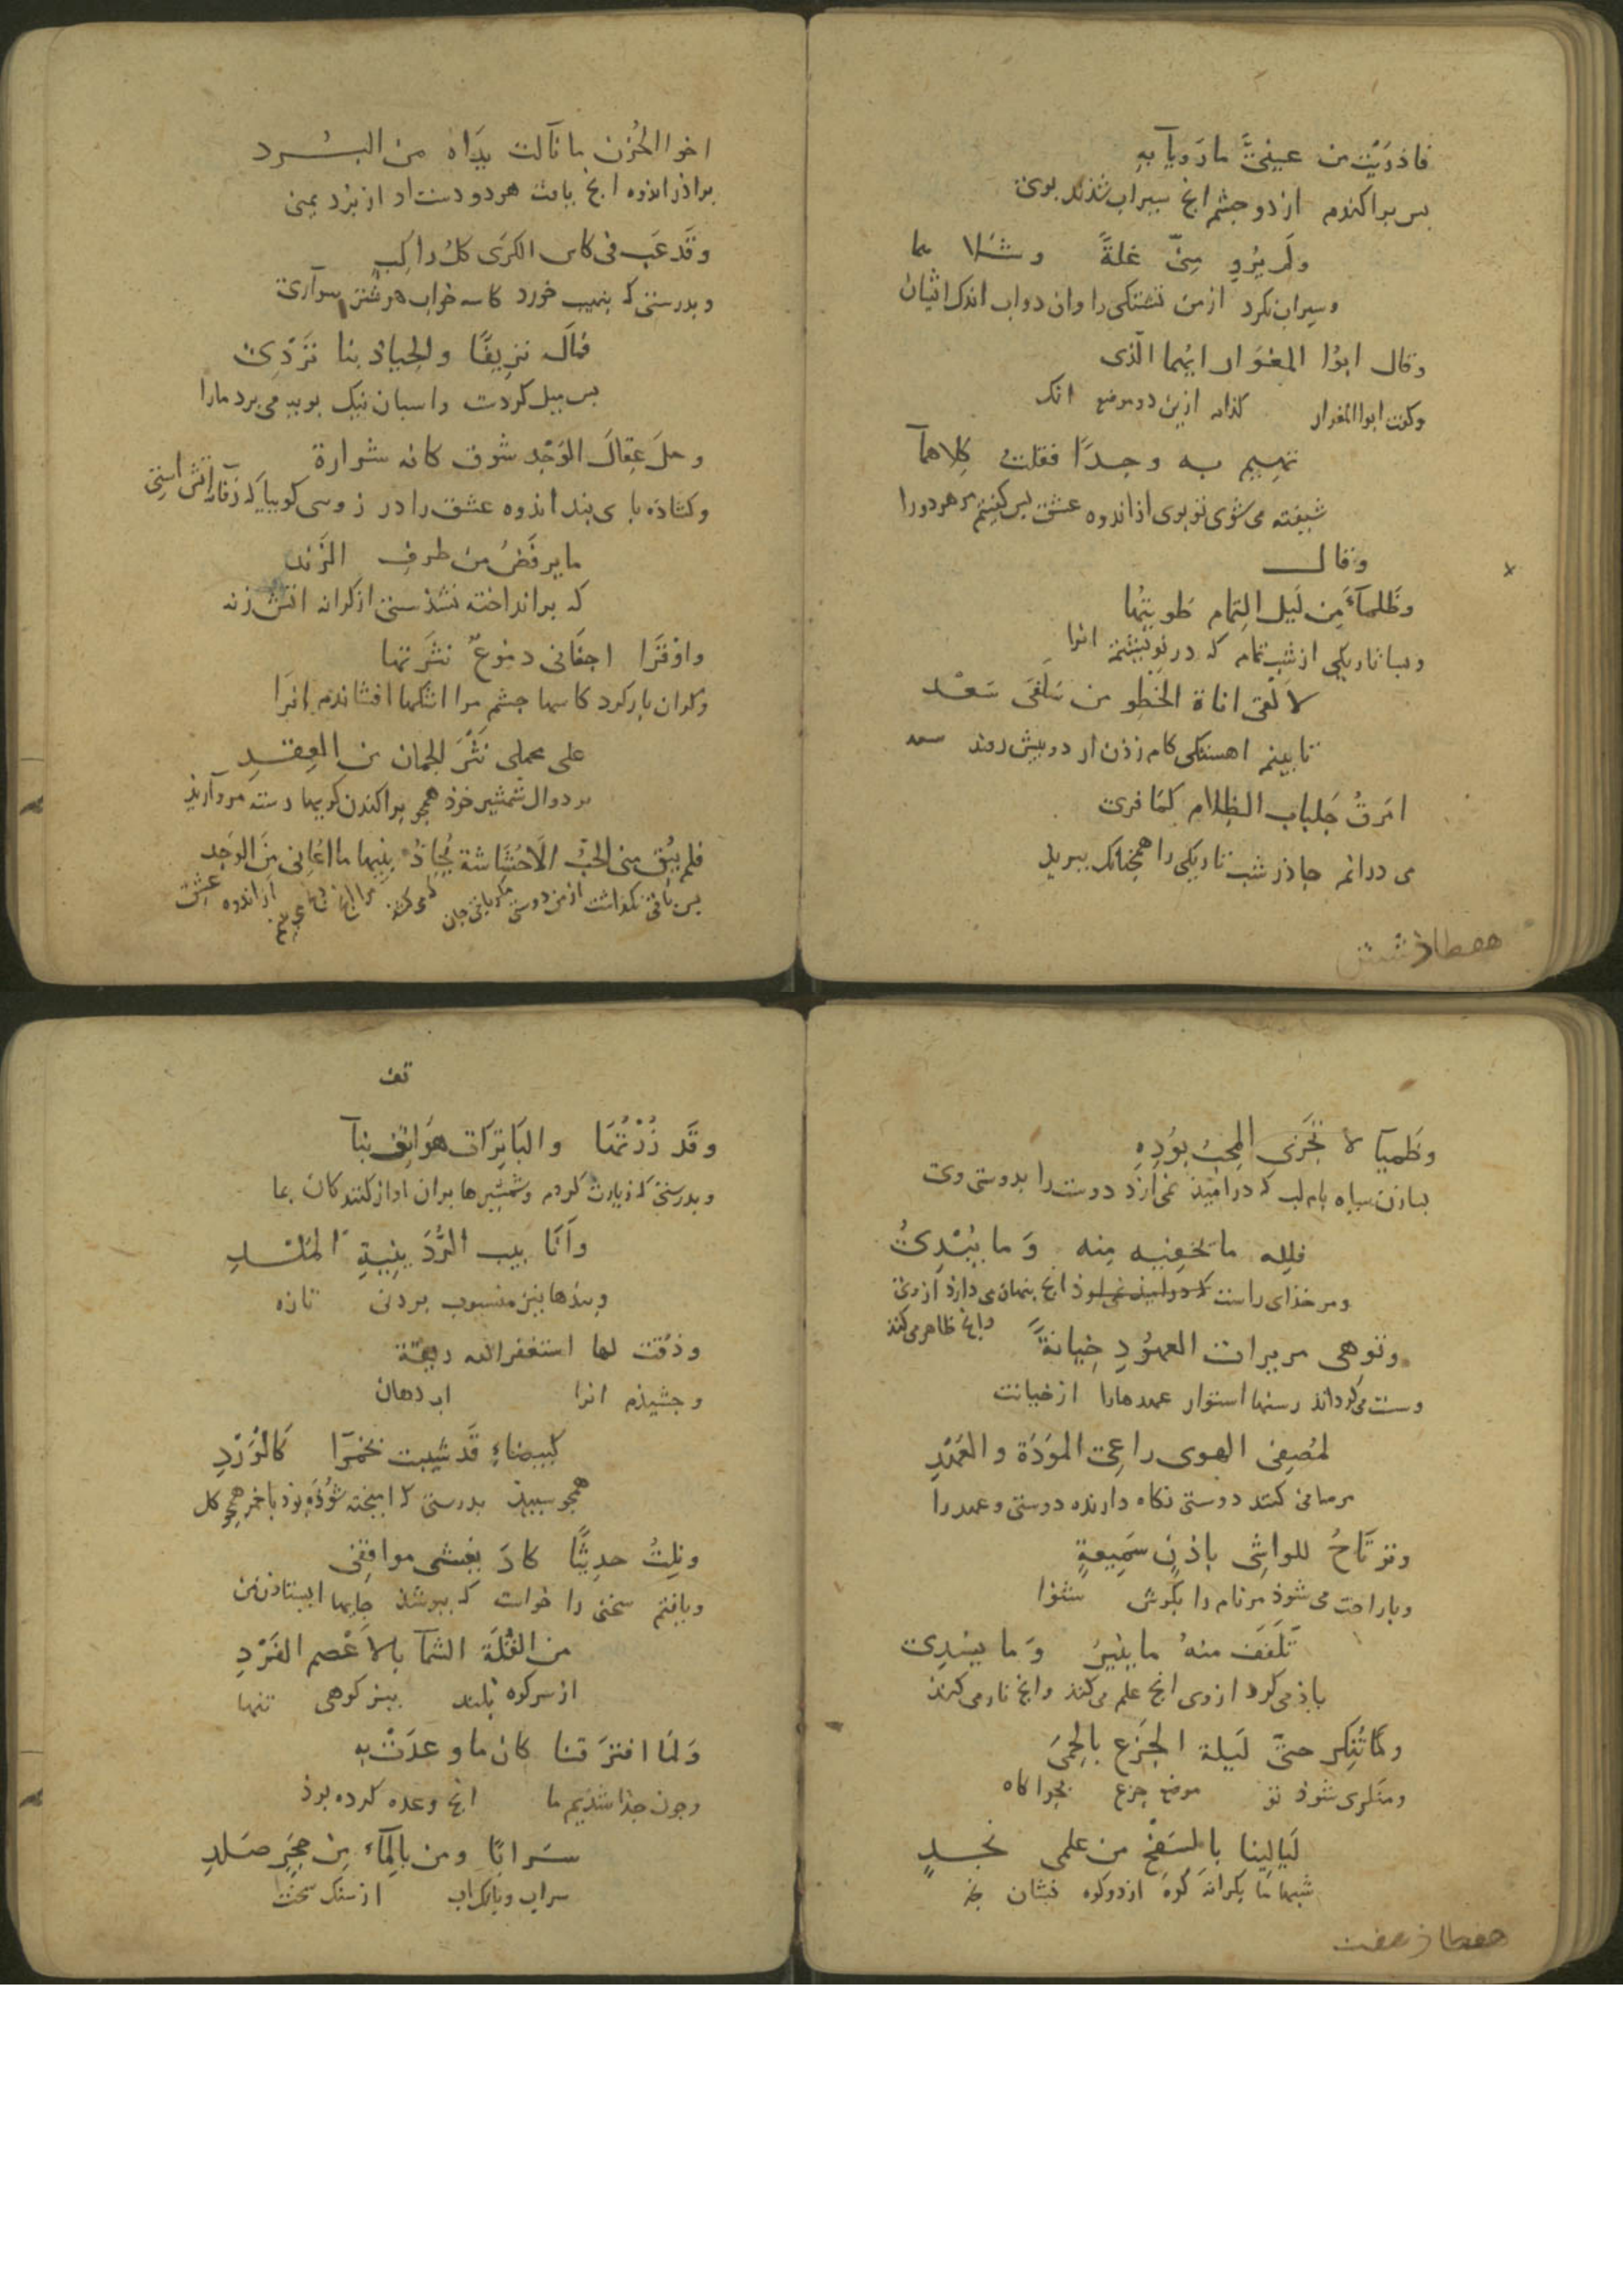 فاذرَيْتُ من عينىَّ ما رَوِيآ بهِ
بس براكندم از دو جشم انج سيراب شذند بوى
ولَم يُروِ مِنّى غلةً وشَلا هما
وسيراب نكرد از من تشنكى را وان دو اب اندك ايشان
وقال ابوُا المغوَار ايُهما الّذى
وكفت ابوا المغوار كذام ازين دو موضع انك
تهِيم به وجدًا فقلتُ كِلاهمآ
شيفته مى شوى تو بوى از اندوه عشق بس كفتم هر دو را
وقال
وظَلمآءَ مِن لَيل التِمام طويتُها
وبسا تاريكى از شب تمام كه در نوشتم انرا
لالقى اناة الخَطو من سَلَفَى سَعْد
تا بينم اهستكى كام زذن از دو بيش روند سعد
امَزقُ جَلباب الظِلام كمَا فرى
مى درانم جاذر شب تاريكى را همجنانك ببريذ
هفطاذ شش
اخوا الحُزن ما نآلت يدَاه من البُرد
براذر اندوه انج يافت هر دو دست او از برد يمنى
وقَد عَب فى كاس الكرَى كلُ راكبٍ
وبدرستى كه بنهيب خورد كاسه خواب هر شتر سوآرى
فمَالَ نزِيفًا والجياد بنا تَرْدِى
بس ميل كردت واسبان نيك بوييه مى برد مارا
وحلَ عِقالَ الوَجْد شوق كانه شرارة
وكشاذه باى بند اندوه عشق را در زوسى كوييا كه زفانه اتش استى
ما يرفَضُ من طرفِ الزَند
كه برانداخته نشذستى از كرانه اتش زنه
واوقرَا اجفانى دموعٌ نثَرتها
وكران بار كرد كاسها جشم مرا اشكها افشاندم انرَا
على محملى نَثْرَ الجمان من العِقدِ
بر دوال شمشير خوذ همجو براكندن كويها دسته مروآريذ
فلم يُبْق منى الحبّ الّا حُشَاشة يُجاذبنيها ما اعُانى مِنَ الوَجد
بس باقى نكذاشت از من دوستى مكر باقى جان كه مى كشذ مرا از اندوه عشق
وظَميَآ لا تَجزى المحبُ بوُدِهِ
بسا زن سياه بام لب كه در اميذ نمى ارذ دوست را بدوستى وى
فلِله ما تخفِيه مِنه وَما يُبْدِىُ
ومر خذاى راست انج بنهان مى دارد از وى وانج ظاهر مى كند
وتوهى مريرات العهوُدِ خِيانةً
وست مى كرداند رسنها استوار عهدها را از خيانت
لمُصفِى الهوى راعِى المودَة والعَهْدِ
مر صافى كننده دوستى نكاه دارنده دوستى وعهد را
وترتَاحُ للواشِى باذنٍ سَمِيعةٍ
وبا راحت مى شوذ مر نمام را بكوش شنوا
تَلَقَفَ منهُ ما يُنيرُ وَما يسْدِى
باذ مى كرد از وى انج علم مى كند وانج تار مى كند
ولمّا تُنِكر حتىّ لَيلة الجَزع بالحِمىَ
ومنكر مى شوذ تو موضع جزع بجراكاه
لَيالِينا بالسَفح من علمى نجدٍ
شبها ما بكرانه كوه از دو كوه نشان نجد
هفطاذ هفت
تف
وقَد زُرْتُهَا والبَاتِرَات هَواتِف بنآ
وبدرستى كه زيارت كردم وشمشيرها بران اواز كنندكان بما
وَاَنَا بيب الرُّدَيْنِيةِ المُلْدِ
وبندها نيز منسوب بردن تازه
وذقت لها استغفر الله ريقة
وجشيذم انرا اب دهان
كبيضاءِ قَد شيبت بخمرٓا كَالوَرْدِ
همجو سبيذ بدرستى كه اميخته شوذه بوذ باخمر همجو كل
ونِلتُ حديثًا كادَ يغشى مواقِفى
ويافتم سخنى را خواست كه ببوشذ جايها ايستاذن من
من القُلَةَ الشمآ بالاَعْصم الفَرْدِ
از سر كوه بلند ببز كوهى تنها
وَلمَا افترَقنا كان ما وعدَتْ به
وجون جذا شذيم ما انج وعده كرده بوذ
سَرابًا ومن بالمِآء مِن حجَرٍ صَلدِ
سراب وبانك اب از سنك سخت